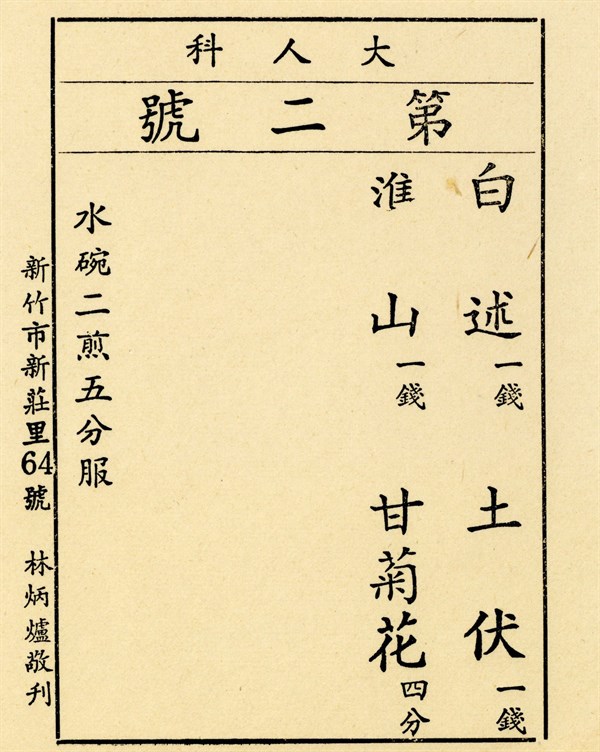 大人科
第二號
白述一錢 土伏一錢
淮山一錢 甘菊花四分
水碗二煎五分服
新竹市新莊里64號 林炳爐敬刊